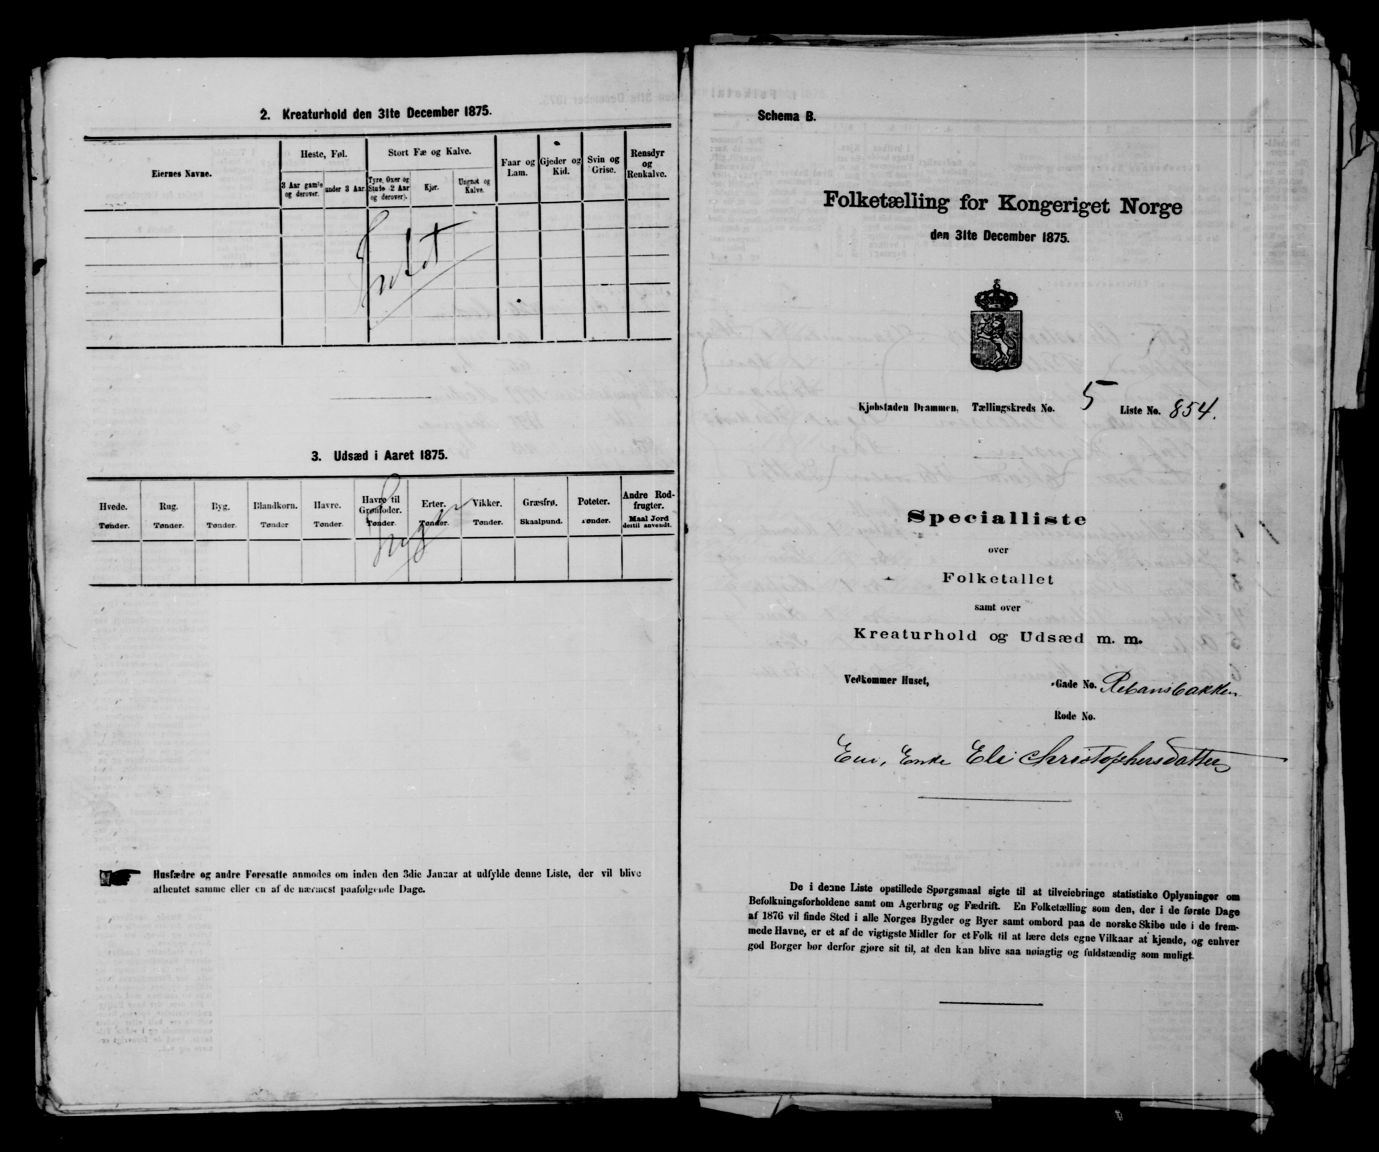 2. Kreaturhold den 31te December 1875.
Eiernes Navne.
Heste, Føl.
Stort Fæ og Kalve.
Faar og Lam.
Gjeder og Kid.
Svin og Grise.
Rensdyr og Renkalve.
3 Aar gamle og derover.
under 3 Aar.
Tyre, Oxer og Stude (2 Aar og derover).
Kjør.
Ungnøt og Kalve.
Intet
3. Udsæd i Aaret 1875.
Hvede. Rug. Byg. Blandkorn. Havre. Havre til Grønfoder. Erter. Vikker. Græsfrø. Poteter. Andre Rodfrugter.
Tønder. Tønder. Tønder. Tønder Tønder. Tønder. Tønder. Tønder. Skaalpund. Tønder. Maal Jord dertil anvendt.
Ingen
Husfædre og andre Foresatte anmodes om inden den 3die Januar at udfylde denne Liste, der vil blive
afhentet samme eller en af de nærmest paafølgende Dage.
Schema B.
Folketælling for Kongeriget Norge
den 31te December 1875.
Kjøbstaden Drammen, Tællingskreds No. 5 Liste No. 854.
Specialliste
over
Folketallet
samt over
Kreaturhold og Udsæd m. m.
Vedkommer Huset, Gade No. Rebansbakken
Rode No.
Eier, Enke Eli Christophersdatter
De i denne Liste opstillede Spørgsmaal sigte til at tilveiebringe statistiske Oplysninger om
Befolkningsforholdene samt om Agerbrug og Fædrift. En Folketælling som den, der i de første Dage
af 1876 vil finde Sted i alle Norges Bygder og Byer samt ombord paa de norske Skibe ude i de frem-
mede Havne, er et af de vigtigste Midler for et Folk til at lære dets egne Vilkaar at kjende, og enhver
god Borger bør derfor gjøre sit til, at den kan blive saa nøiagtig og fuldstændig som muligt.